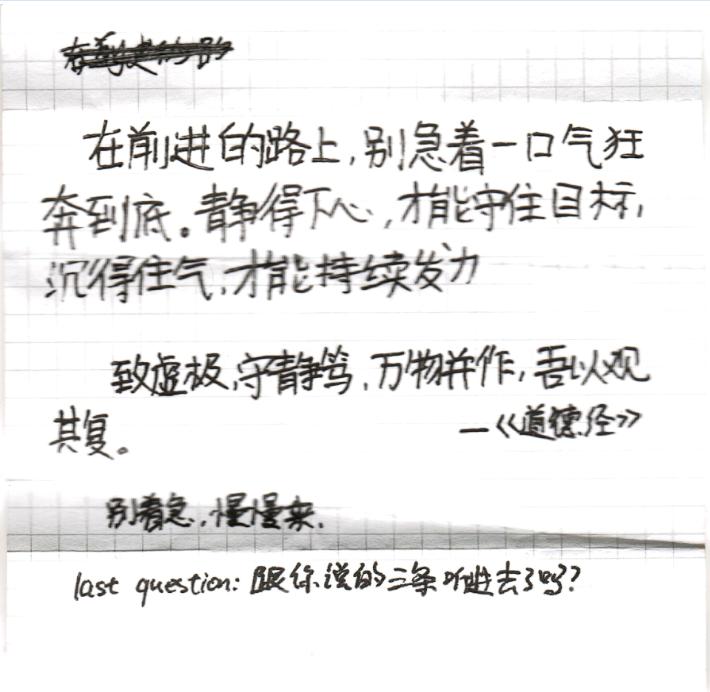 在前进的路上,别急着一口气狂
奔到底。静得下心,才能守住目标,
沉得住气,才能持续发力
致虚极,守静笃,万物并作,吾以观
其复。
—《道德经》
别着急,慢慢来.
last question: 跟你说的三条听进去了吗?